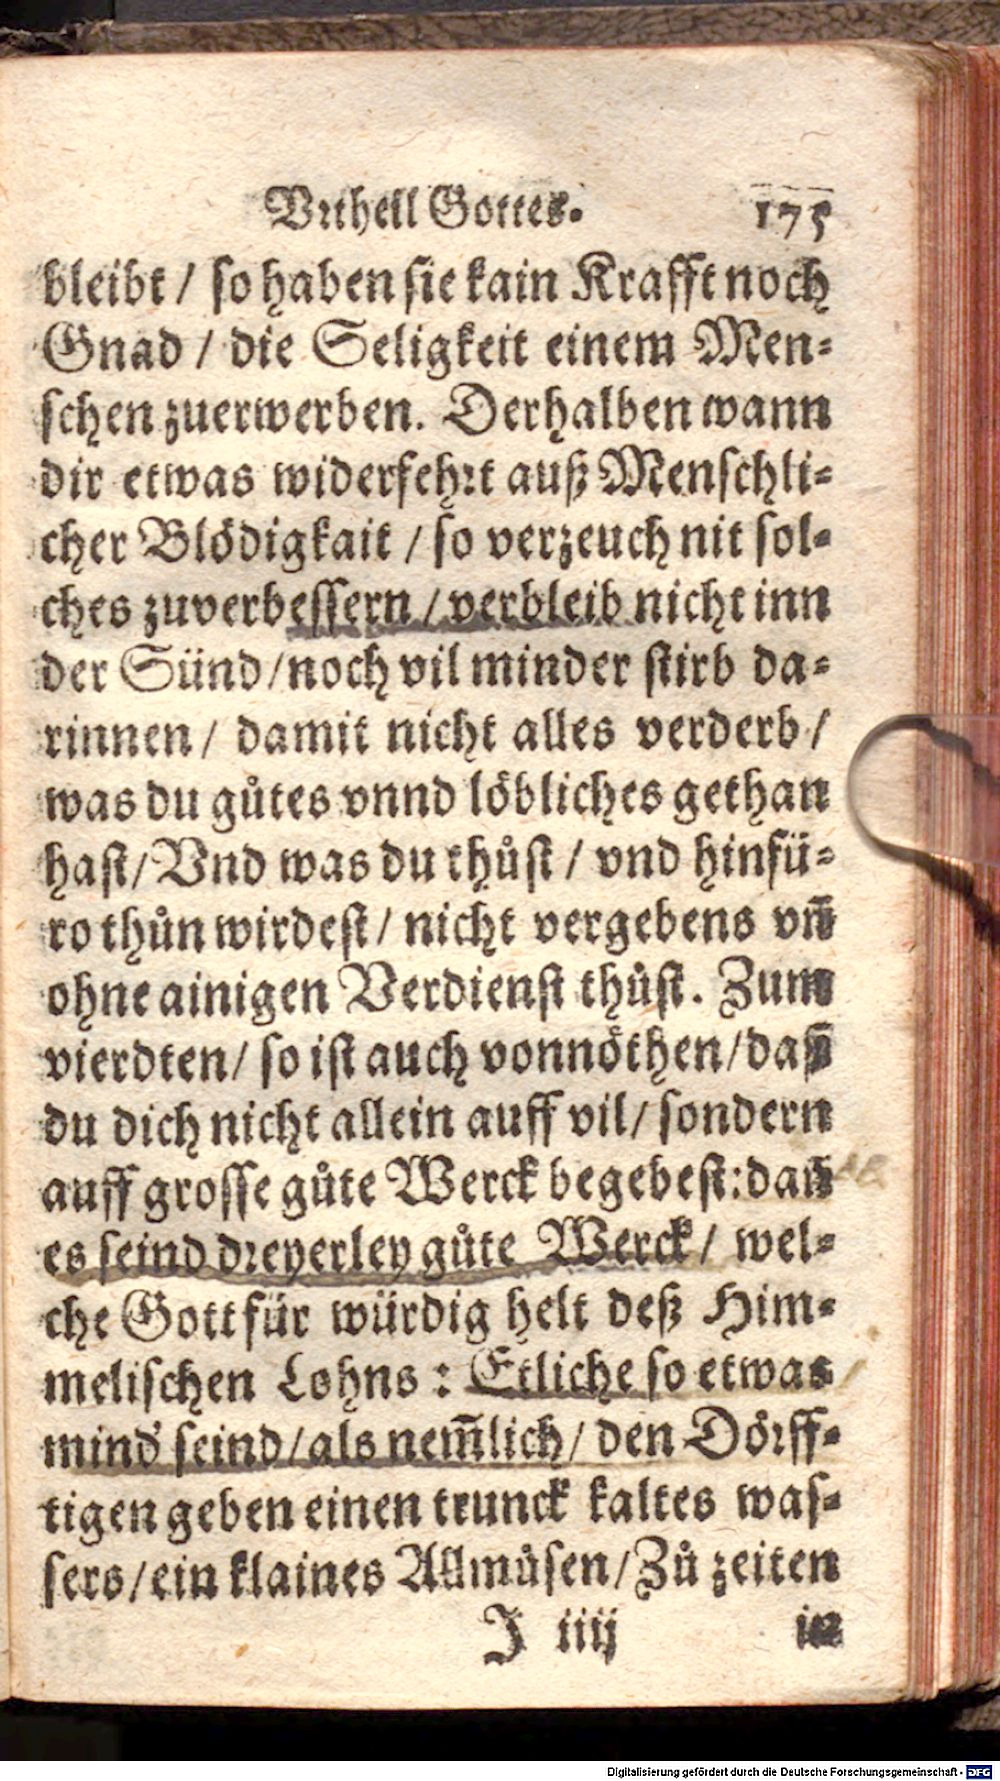 Vrtheil Gottes. 175
bleibt / so haben sie kain Krafft noch
Gnad / die Seligkeit einem Men-
schen zuerwerben. Derhalben wann
dir etwas widerfehrt auß Menschli-
cher Blödigkait / so verzeuch nit sol-
ches zuverbessern / verbleib nicht inn
der Sünd / noch vil minder stirb da-
rinnen / damit nicht alles verderb /
was du gůtes vnnd löbliches gethan
hast / Vnd was du thůst / vnd hinfü-
ro thůn wirdest / nicht vergebens vñ
ohne ainigen Verdienst thůst. Zum
vierdten / so ist auch vonnöthen / daß
du dich nicht allein auff vil / sondern
auff grosse gůte Werck begebest: dañ
es seind dreyerley gůte Werck / wel-
che Gott für würdig helt deß Him-
melischen Lohns : Etliche so etwas
mind' seind / als nem̃lich / den Dörff-
tigen geben einen trunck kaltes was-
sers / ein klaines Allmůsen / Zů zeiten
J iiij
Digitalisierung gefördert durch die Deutsche Forschungsgemeinschaft - DFG